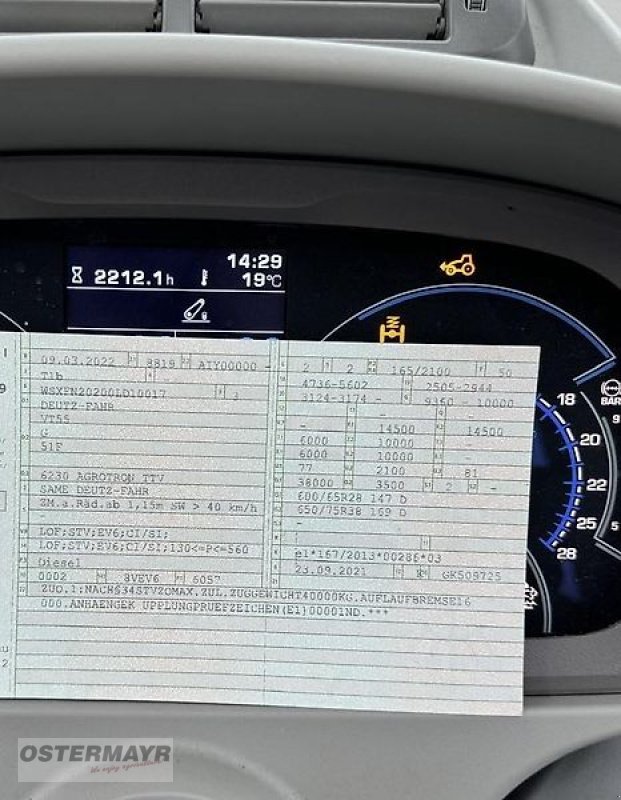 14:29
2212.1h 19°C
BAR
9
5
18
20
22
25
28
09.03.2022 8819 AIY00000 -
T1b
WSXFN20200LD10017
DEUTZ-FAHR
VT55
G
51F
6230 AGROTRON TTV
SAME DEUTZ-FAHR
ZM.a.Räd.ab 1,15m SW > 40 km/h
LOF;STV;EV6;CI/SI;
LOF;STV;EV6;CI/SI;130<=P<=560
Diesel
0002 3VEV6 6057
2 2 165/2100 50
4736-5602 2505-2944
3124-3174 - 9360 -10000
- 14500 14500
6000 10000 -
6000 10000 -
77 2100 81
38000 3500 2 -
600/65R28 147 D
650/75R38 169 D
-
-
e1*167/2013*00286*03
23.09.2021 K GK509725
ZUO.1:NACH§34STVZOMAX.ZUL.ZUGGEWICHT40000KG.AUFLAUFBREMSE16
000.ANHAENGEK UPPLUNGPRUEFZEICHEN(E1)00001ND.***
OSTERMAYR
we enjoy agriculture